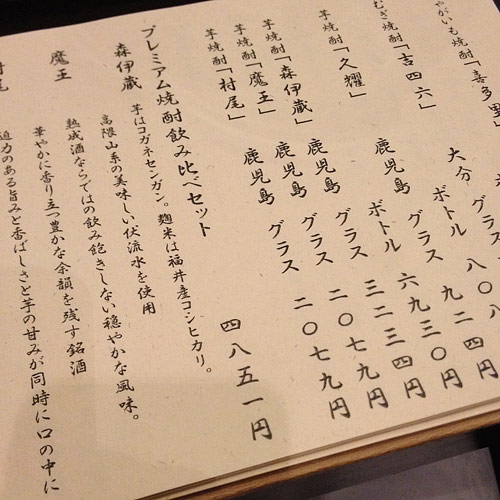 やがいも焼酎「喜多里
グラス
むぎ焼酎「吉四六」 大分 ボトル 八〇八
芋焼酎「久耀」 鹿児島 グラス 九二四円
ボトル 六九三〇円
芋焼酎「森伊蔵」 鹿児島 グラス 三二三四円
芋焼酎「魔王」 鹿児島 グラス 二〇七九円
芋焼酎「村尾」 鹿児島 グラス 二〇七九円
プレミアム焼酎飲み比べセット 四八五一円
森伊蔵 芋はコガネセンガン。麹米は福井産コシヒカリ。
高隈山系の美味しい伏流水を使用
魔王 熟成酒ならではの飲み飽きしない穏やかな風味。
華やかに香り立つ豊かな余韻を残す銘酒
村尾 迫力のある旨みと香ばしさと芋の甘みが同時に口の中に